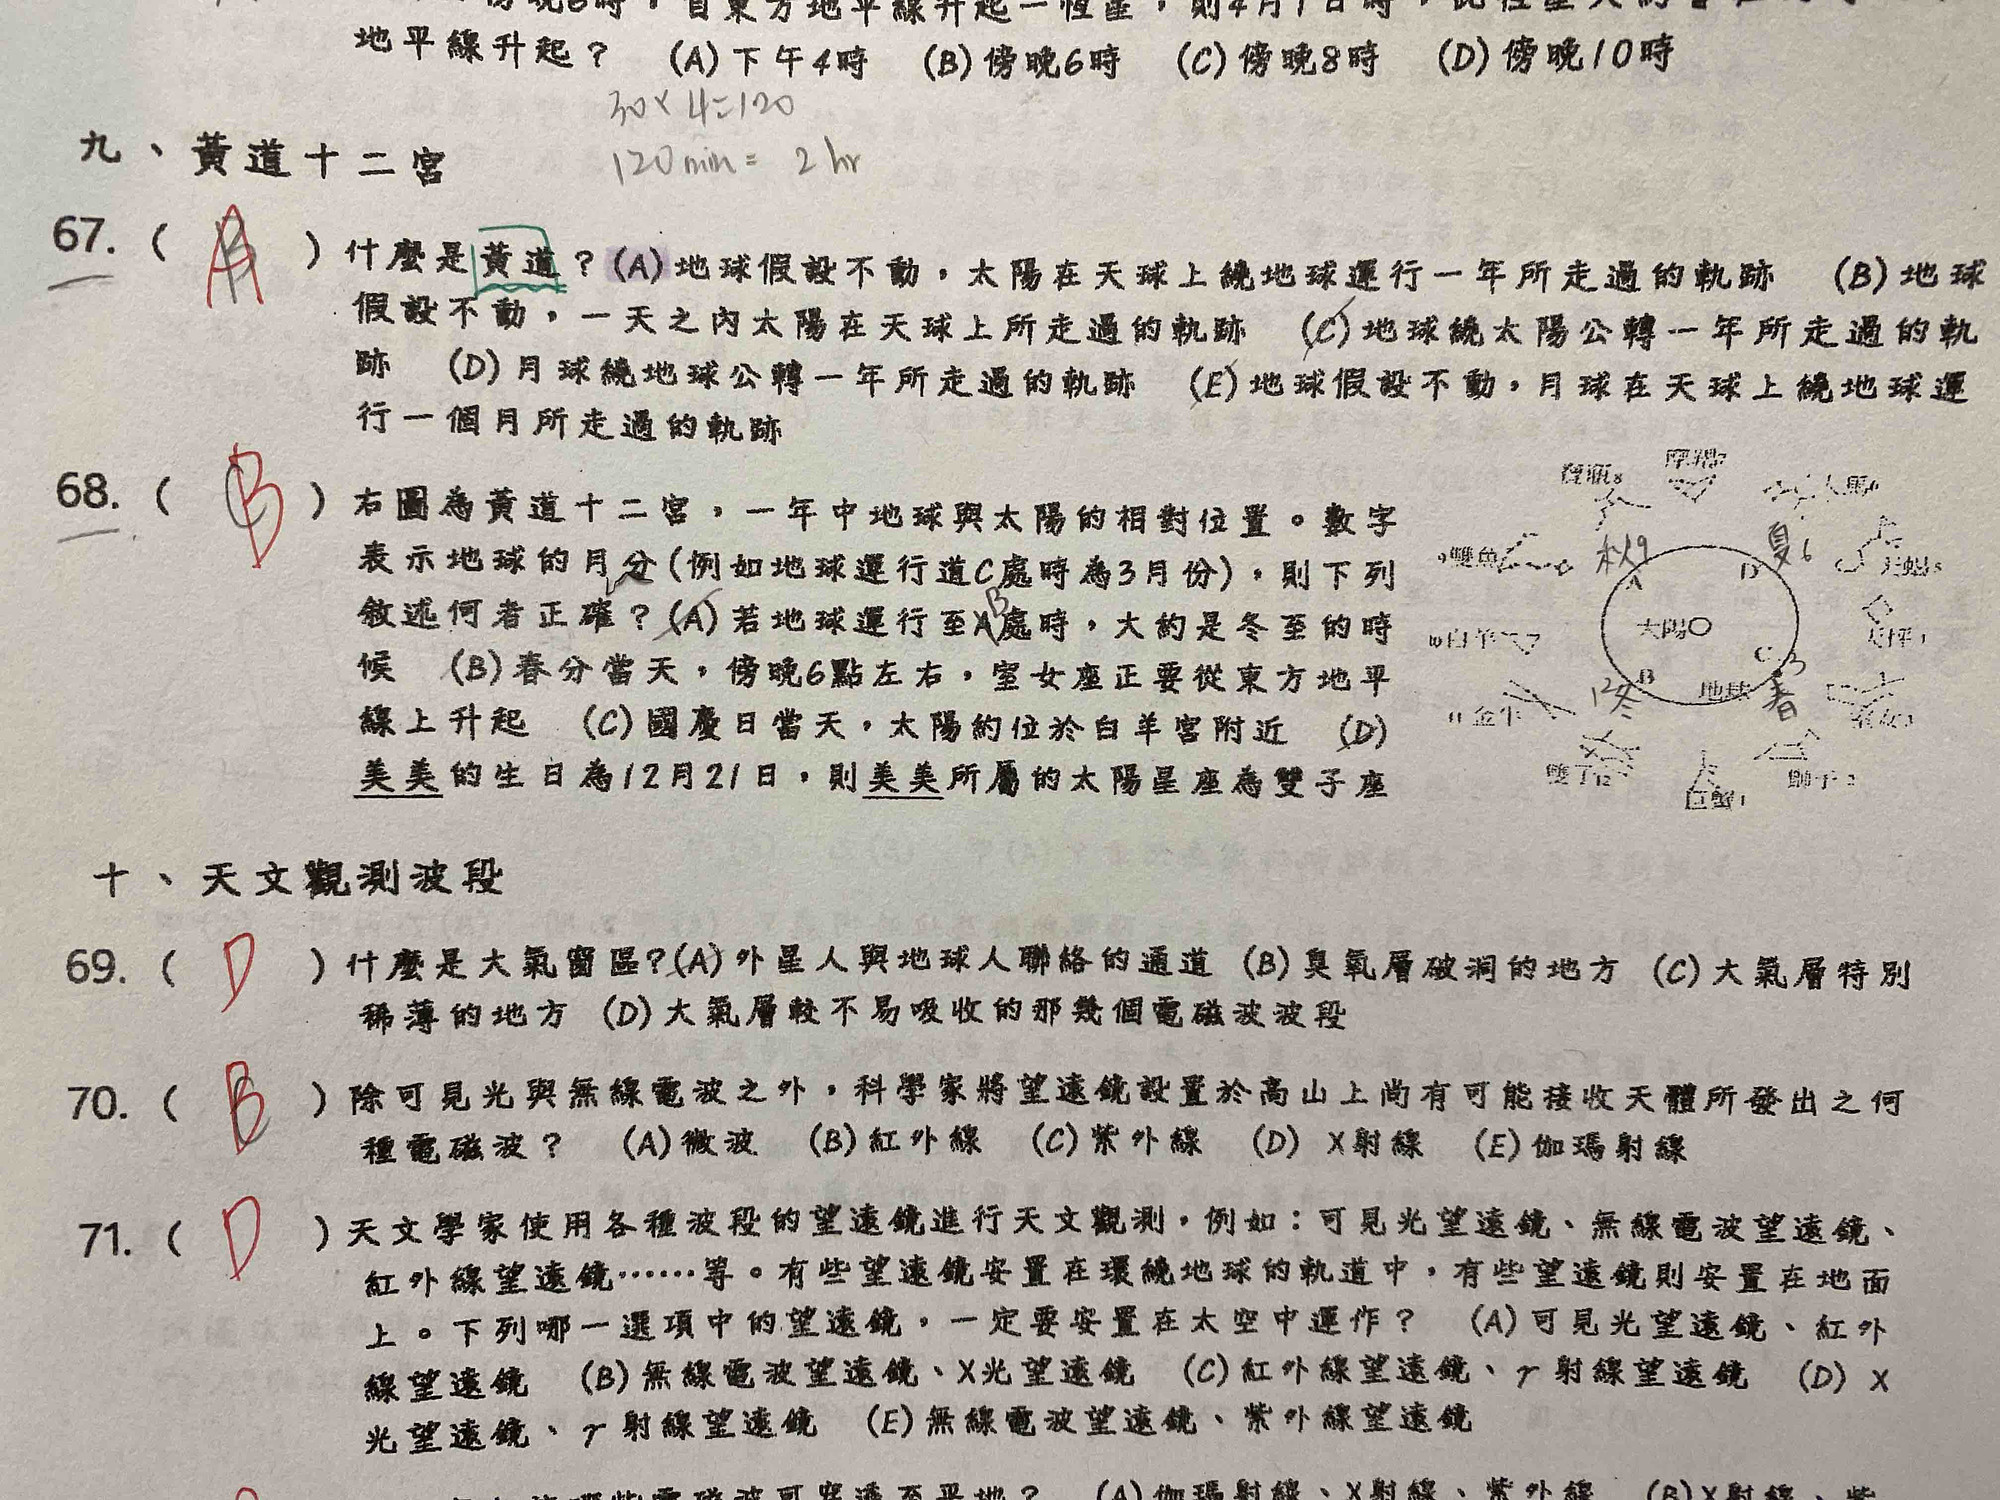 地平線升起? (A)下午4時 (B)傍晚6時 (C)傍晚8時 (D)傍晚10時
30×4=120
120min= 2hr
九、黃道十二宮
67. ( A ) 什麼是黃道?(A)地球假設不動,太陽在天球上繞地球運行一年所走過的軌跡 (B)地球
假設不動,一天之內太陽在天球上所走過的軌跡 (C)地球繞太陽公轉一年所走過的軌
跡 (D)月球繞地球公轉一年所走過的軌跡 (E)地球假設不動,月球在天球上繞地球運
行一個月所走過的軌跡
68. ( B ) 右圖為黃道十二宮,一年中地球與太陽的相對位置。數字
表示地球的月分(例如地球運行道C處時為3月份),則下列
敘述何者正確?(A)若地球運行至A處時,大約是冬至的時
B
候 (B)春分當天,傍晚6點左右,室女座正要從東方地平
線上升起 (C)國慶日當天,太陽約位於白羊宮附近 (D)
美美的生日為12月21日,則美美所屬的太陽星座為雙子座
寶瓶8 摩羯7 人馬6
9雙魚 秋9 A D 夏6 天蠍5
10白羊 太陽 天秤
11金牛 12冬 B 地球 C 3春 室女3
雙子12 巨蟹1 獅子2
十、天文觀測波段
69. ( D ) 什麼是大氣窗區?(A)外星人與地球人聯絡的通道 (B)臭氧層破洞的地方 (C)大氣層特別
稀薄的地方 (D)大氣層較不易吸收的那幾個電磁波波段
70. ( B ) 除可見光與無線電波之外,科學家將望遠鏡設置於高山上尚有可能接收天體所發出之何
種電磁波? (A)微波 (B)紅外線 (C)紫外線 (D) X射線 (E)伽瑪射線
71. ( D ) 天文學家使用各種波段的望遠鏡進行天文觀測,例如:可見光望遠鏡、無線電波望遠鏡、
紅外線望遠鏡……等。有些望遠鏡安置在環繞地球的軌道中,有些望遠鏡則安置在地面
上。下列哪一選項中的望遠鏡,一定要安置在太空中運作? (A)可見光望遠鏡、紅外
線望遠鏡 (B)無線電波望遠鏡、X光望遠鏡 (C)紅外線望遠鏡、γ射線望遠鏡 (D) X
光望遠鏡、γ射線望遠鏡 (E)無線電波望遠鏡、紫外線望遠鏡